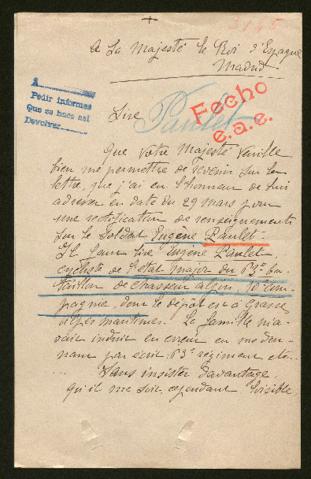 A Sa Majesté le Roi d'Espagne
Madrid
A
Pedir informes
Que se haga así
Devolver
Fecho
e.a.e.
Sire
Paulet
Que Votre Majesté veuille
bien me permettre de revenir sur la
lettre, que j'ai eu l'honneur de lui
adresser en date du 29 mars pour
une rectification de renseignements
sur le soldat Eugène Paulet.
Il faut lire Eugène Paulet,
cycliste de l'état major du 63me ba-
taillon de chasseurs alpins, 10e com-
pagnie, dont le dépôt est à Grasse
alpes maritimes. La famille m'a-
vait induit en erreur en me don-
nant par écrit 63e régiment etc..
Sans insister davantage
qu'il me soit cependant loisible